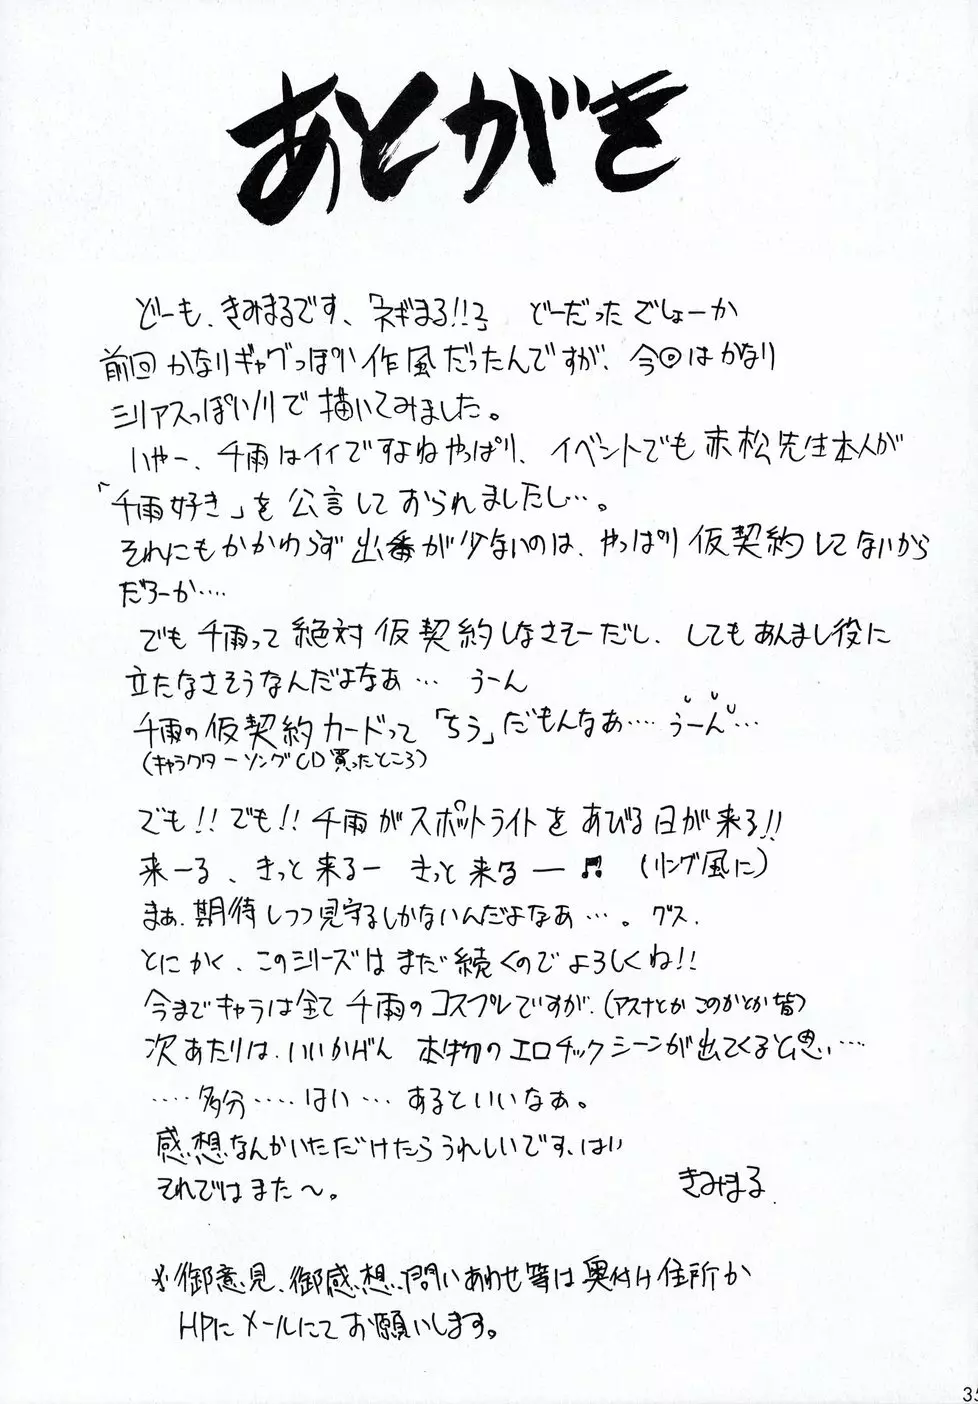 あとがき
どーも、きみまるです、「ネギまる!!」 どーだったでしょーか
前回かなりギャグっぽい作風だったんですが、今回はかなり
シリアスっぽいノリで描いてみました。
いやー、千雨はイイですよねやっぱり、イベントでも赤松先生本人が
「千雨好き」を公言しておられましたし…。
それにもかかわらず出番が少ないのは、やっぱり仮契約してないから
だろーか‥‥
でも千雨って絶対仮契約しなさそーだし、してもあんまし役に
立たなさそうなんだよなぁ… うーん
千雨の仮契約カードって「ちう」だもんなあ‥‥うーん…
(キャラクターソングCD買ったところ)
でも!!でも!!千雨がスポットライトをあびる日が来る!!
来ーる、きっと来るー きっと来るー♬ (リング風に)
まぁ、期待しつつ見守るしかないんだよなあ…。グス.
とにかく、このシリーズはまだ続くのでよろしくね!!
今までキャラは全て千雨のコスプレですが、(アスナとかこのかとか皆)
次あたりは、いいかげん本物のエロチックシーンが出てくると思い…
‥‥多分‥‥はい…あるといいなぁ。
感想なんかいただけたらうれしいです、はい
それではまた〜。
きみまる
※御意見、御感想、問いあわせ等は奥付け住所か
HPにメールにてお願いします。
35